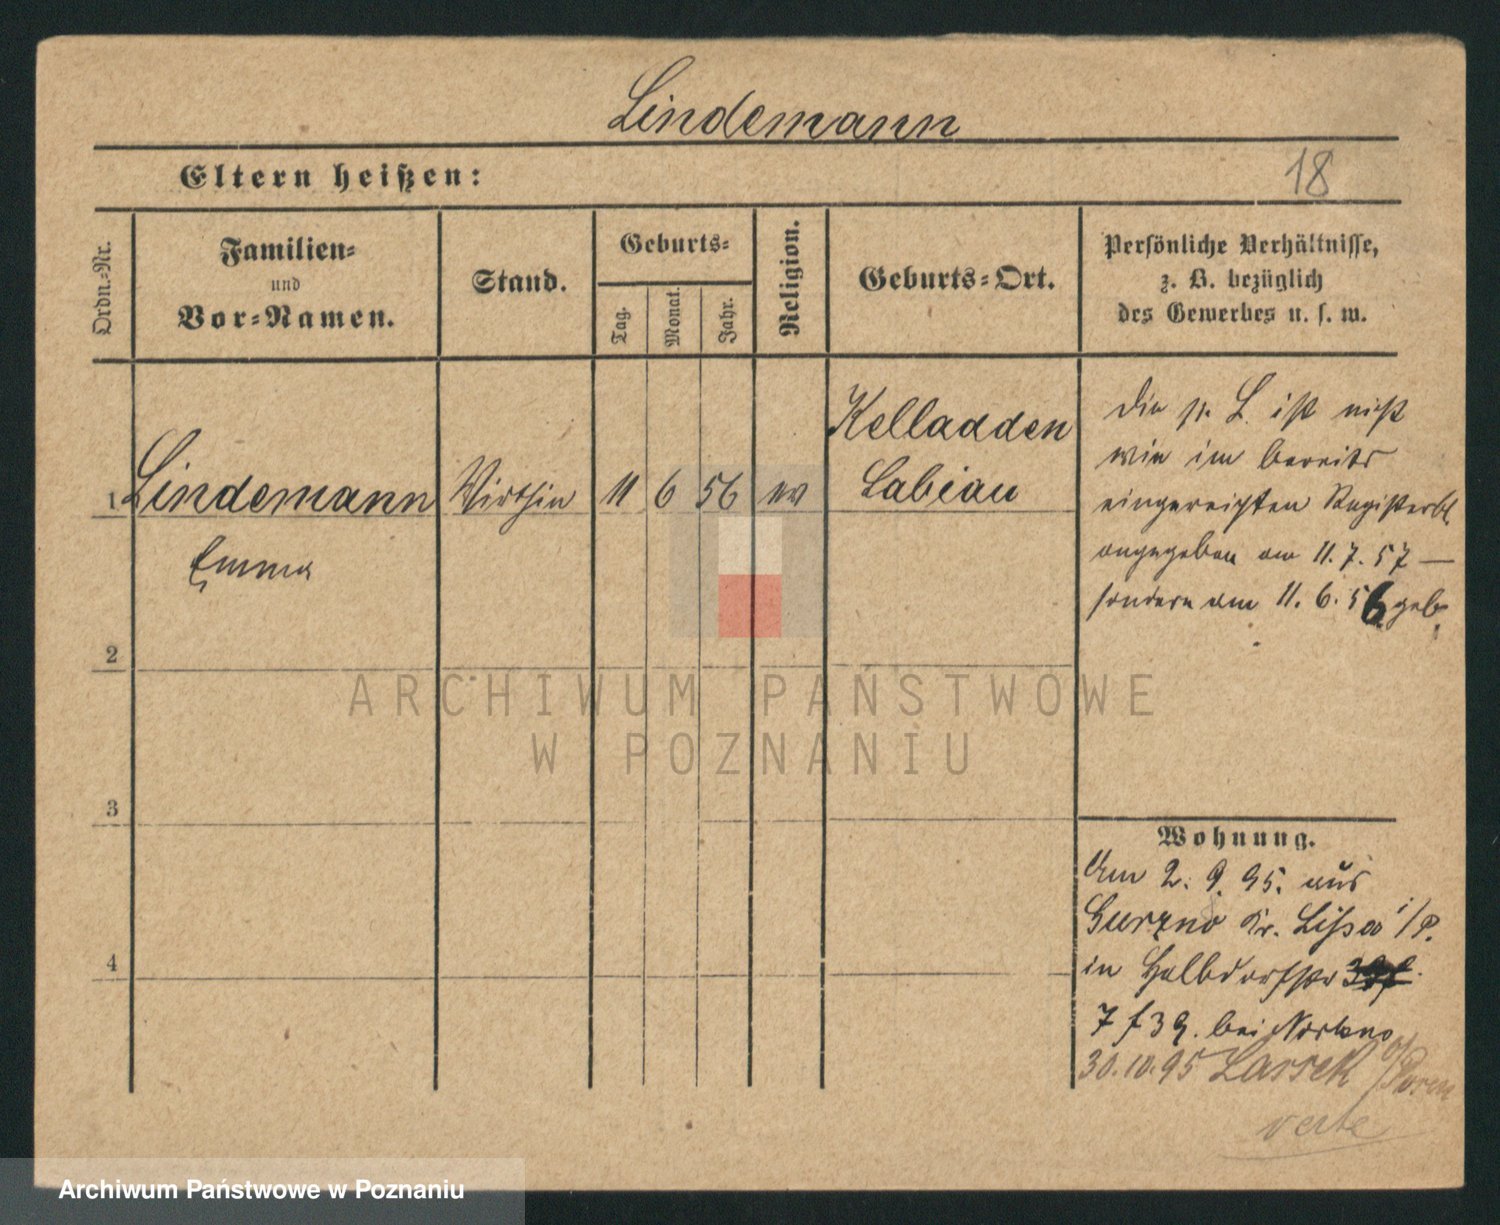 Lindemann
Eltern heißen:
18
Ordn.-Nr.
Familien-
und
Vor-Namen.
Stand.
Geburts-
Tag.
Monat.
Jahr.
Religion.
Geburts-Ort.
Persönliche Verhältnisse,
z. B. bezüglich
des Gewerbes u. s. w.
1 Lindemann
Emma
Wirthin
11 6 56 ev
Kelladden
Labiau
Die p. L. ist nicht
wie im bereits
eingereichten Registerbl.
angegeben am 11. 7. 57 —
sondern am 11. 6. 56 geb.
2
3
4
Wohnung.
Am 2. 9. 95. aus
Gurzno Kr. Lissa i/P.
in Halbdorfstr
7 f 39. bei
30.10.95 Lassek
verte
ARCHIWUM PAŃSTWOWE
W POZNANIU
Archiwum Państwowe w Poznaniu